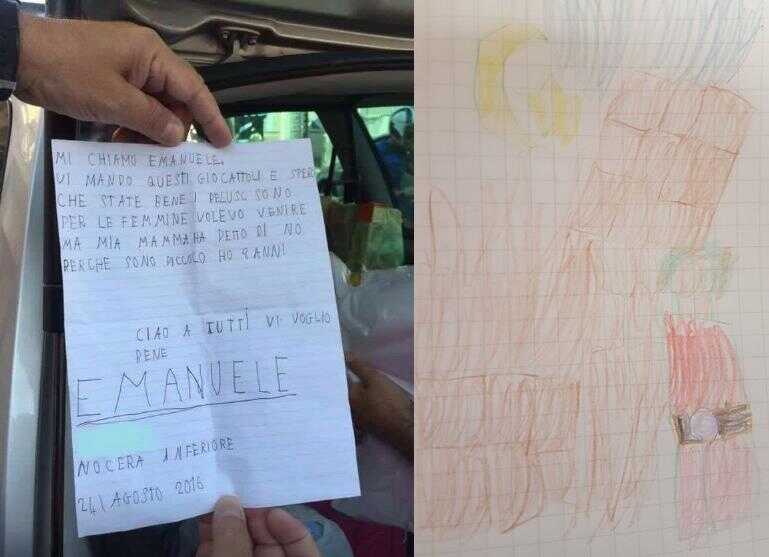 MI CHIAMO EMANUELE.
VI MANDO QUESTI GIOCATTOLI E SPERO
CHE STATE BENE I PELUSC SONO
PER LE FEMMINE VOLEVO VENIRE
MA MIA MAMMA HA DETTO DI NO
PERCHE SONO PICCOLO HO 8 ANNI
CIAO A TUTTI VI VOGLIO
BENE
EMANUELE
NOCERA INFERIORE
24 AGOSTO 2016